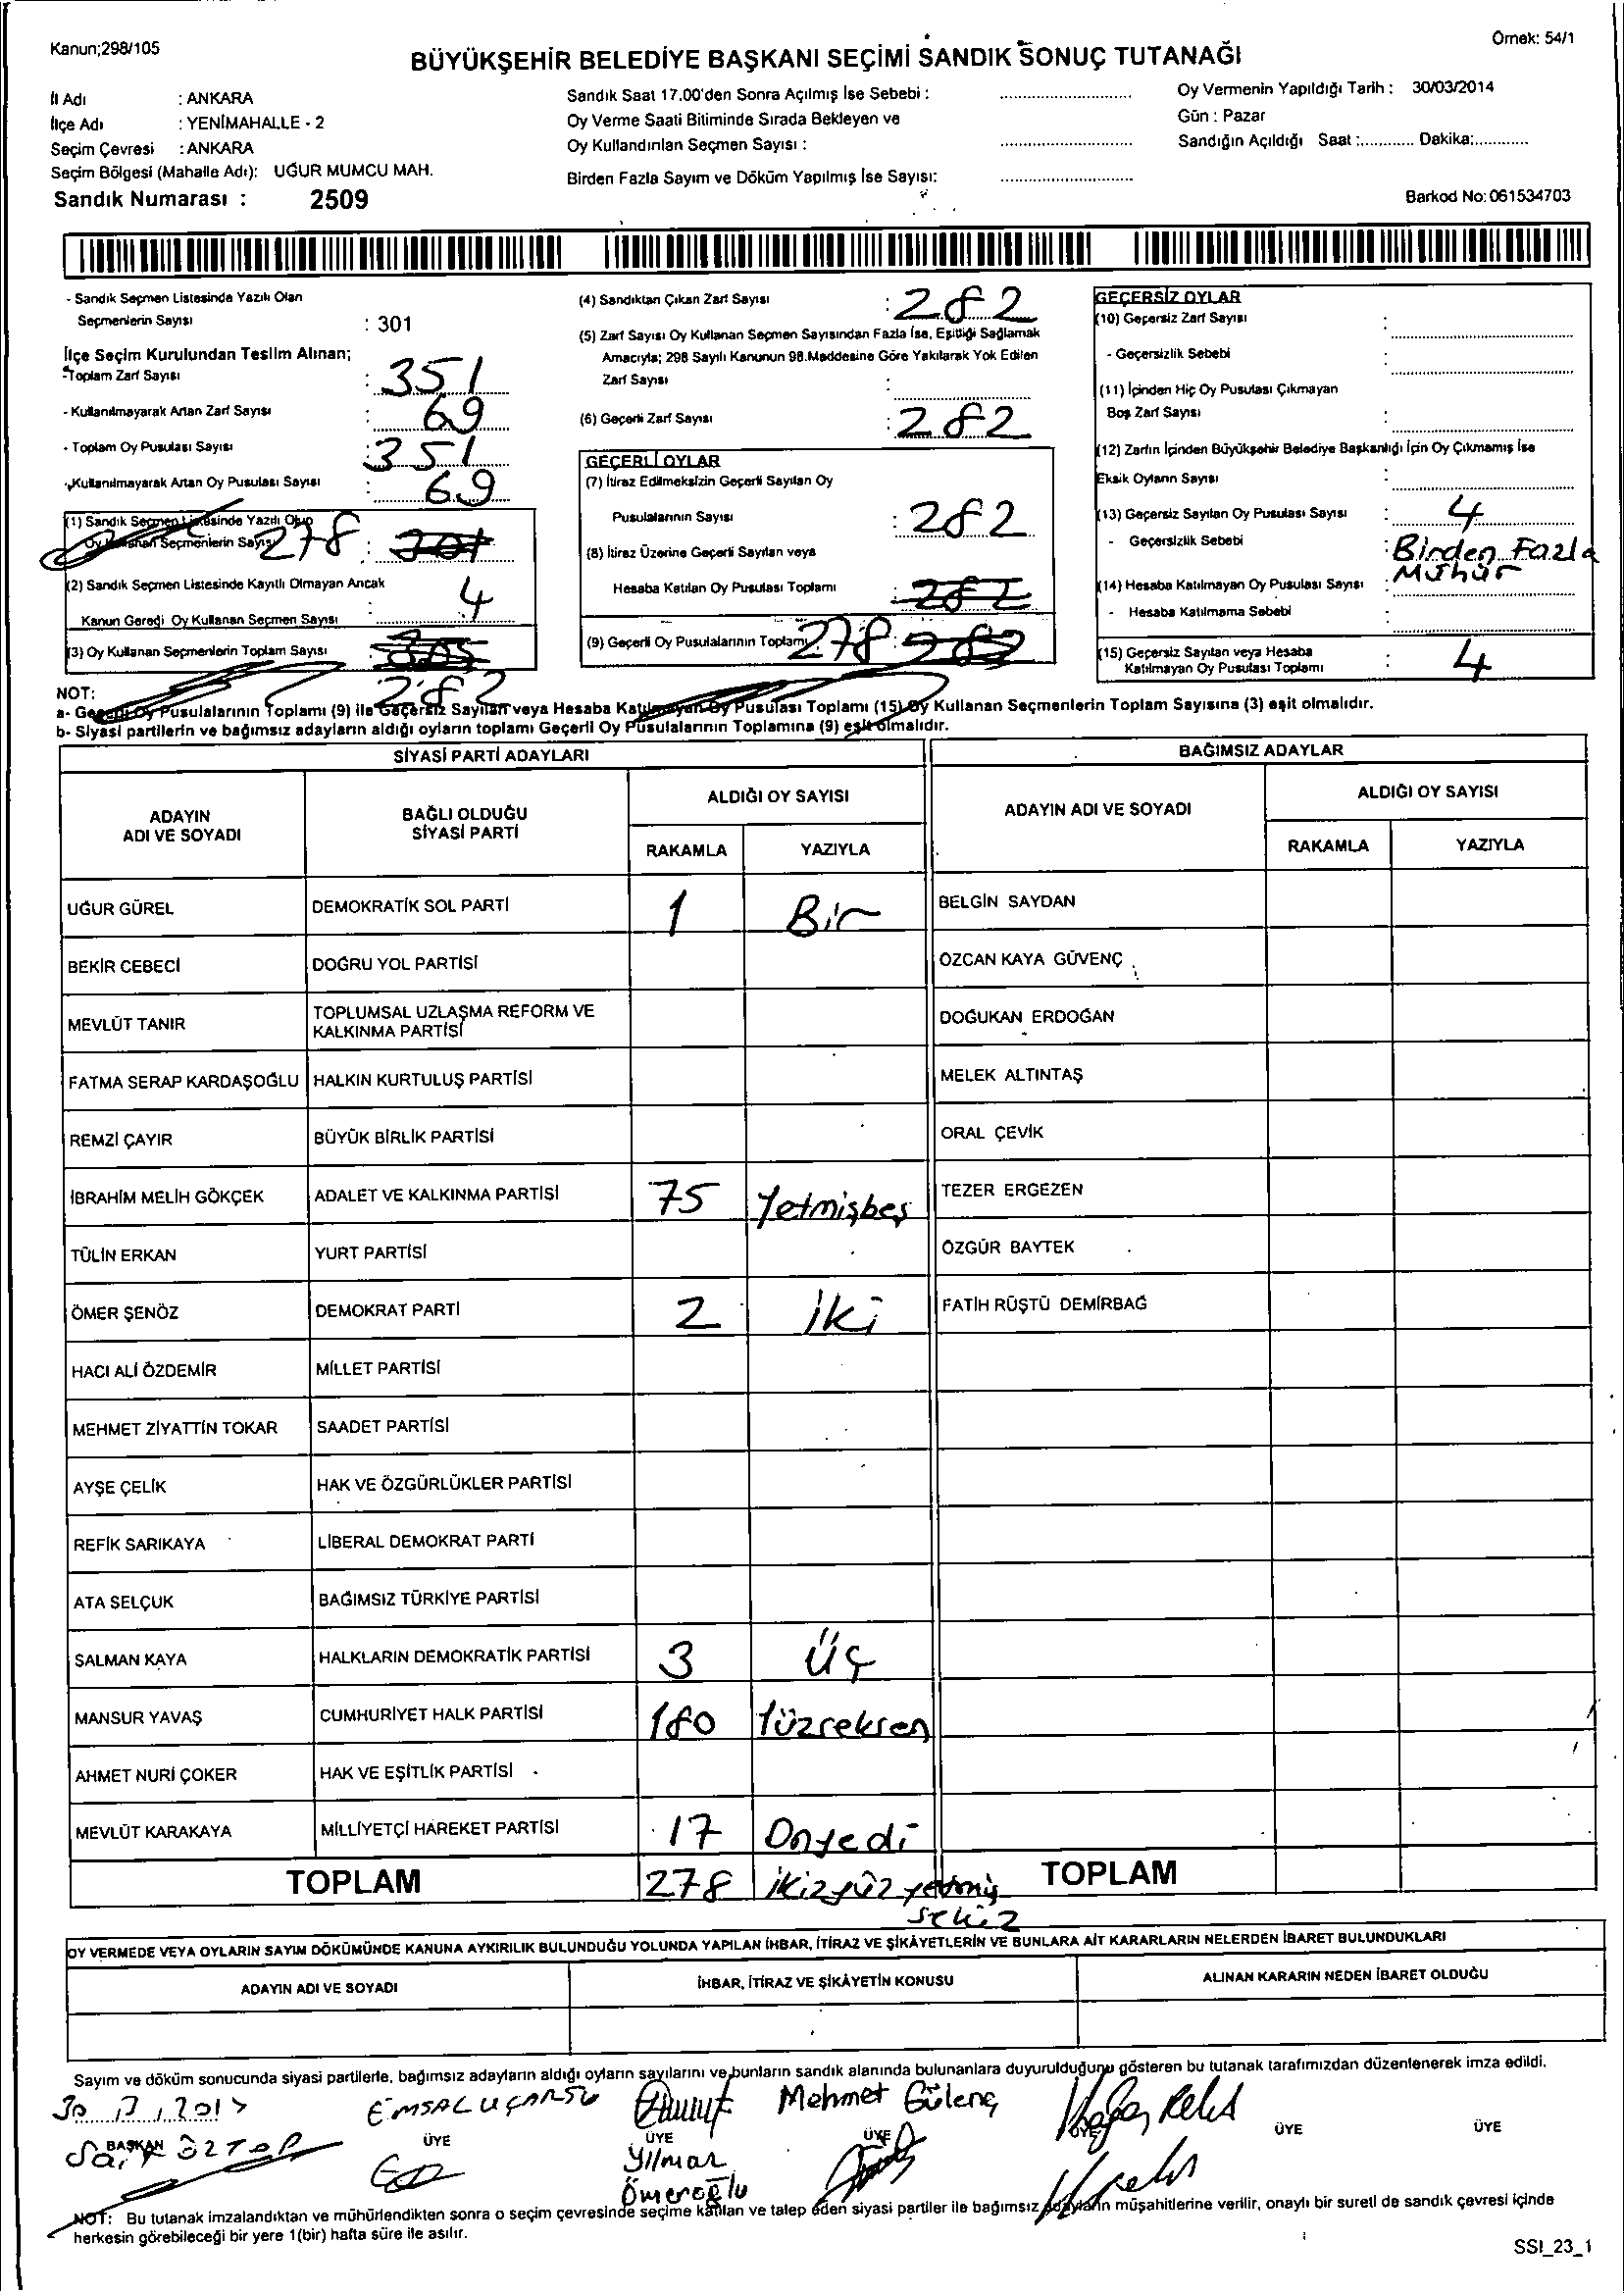 Kanun;298/105
Örnek: 54/1
BÜYÜKŞEHİR BELEDİYE BAŞKANI SEÇİMİ SANDIK SONUÇ TUTANAĞI
İl Adı : ANKARA
İlçe Adı : YENİMAHALLE - 2
Seçim Çevresi : ANKARA
Seçim Bölgesi (Mahalle Adı): UĞUR MUMCU MAH.
Sandık Numarası : 2509
Sandık Saat 17.00'den Sonra Açılmış İse Sebebi :
Oy Verme Saati Bitiminde Sırada Bekleyen ve
Oy Kullandırılan Seçmen Sayısı :
Birden Fazla Sayım ve Döküm Yapılmış İse Sayısı:
Oy Vermenin Yapıldığı Tarih : 30/03/2014
Gün : Pazar
Sandığın Açıldığı Saat :............ Dakika:............
Barkod No: 061534703
- Sandık Seçmen Listesinde Yazılı Olan
Seçmenlerin Sayısı : 301
İlçe Seçim Kurulundan Teslim Alınan;
-Toplam Zarf Sayısı : 351
- Kullanılmayarak Artan Zarf Sayısı : 69
- Toplam Oy Pusulası Sayısı : 351
- Kullanılmayarak Artan Oy Pusulası Sayısı : 69
(1) Sandık Seçmen Listesinde Yazılı Olup
Oy Kullanan Seçmenlerin Sayısı 278 : 301
(2) Sandık Seçmen Listesinde Kayıtlı Olmayan Ancak
Kanun Gereği Oy Kullanan Seçmen Sayısı : 4
(3) Oy Kullanan Seçmenlerin Toplam Sayısı : 305
282
(4) Sandıktan Çıkan Zarf Sayısı : 282
(5) Zarf Sayısı Oy Kullanan Seçmen Sayısından Fazla İse, Eşitliği Sağlamak
Amacıyla; 298 Sayılı Kanunun 98.Maddesine Göre Yakılarak Yok Edilen
Zarf Sayısı :
(6) Geçerli Zarf Sayısı : 282
GEÇERLİ OYLAR
(7) İtiraz Edilmeksizin Geçerli Sayılan Oy
Pusulalarının Sayısı : 282
(8) İtiraz Üzerine Geçerli Sayılan veya
Hesaba Katılan Oy Pusulası Toplamı : 282
(9) Geçerli Oy Pusulalarının Toplamı 278 : 282
GEÇERSİZ OYLAR
(10) Geçersiz Zarf Sayısı :
- Geçersizlik Sebebi :
(11) İçinden Hiç Oy Pusulası Çıkmayan
Boş Zarf Sayısı :
(12) Zarfın İçinden Büyükşehir Belediye Başkanlığı İçin Oy Çıkmamış İse
Eksik Oyların Sayısı :
(13) Geçersiz Sayılan Oy Pusulası Sayısı : 4
- Geçersizlik Sebebi : Birden Fazla
Mühür
(14) Hesaba Katılmayan Oy Pusulası Sayısı :
- Hesaba Katılmama Sebebi :
(15) Geçersiz Sayılan veya Hesaba
Katılmayan Oy Pusulası Toplamı : 4
NOT:
a- Geçerli Oy Pusulalarının Toplamı (9) ile Geçersiz Sayılan veya Hesaba Katılmayan Oy Pusulası Toplamı (15) Oy Kullanan Seçmenlerin Toplam Sayısına (3) eşit olmalıdır.
b- Siyasi partilerin ve bağımsız adayların aldığı oyların toplamı Geçerli Oy Pusulalarının Toplamına (9) eşit olmalıdır.
SİYASİ PARTİ ADAYLARI BAĞIMSIZ ADAYLAR
ADAYIN ADI VE SOYADI BAĞLI OLDUĞU SİYASİ PARTİ ALDIĞI OY SAYISI ADAYIN ADI VE SOYADI ALDIĞI OY SAYISI
RAKAMLA YAZIYLA RAKAMLA YAZIYLA
UĞUR GÜREL DEMOKRATİK SOL PARTİ 1 Bir BELGİN SAYDAN
BEKİR CEBECİ DOĞRU YOL PARTİSİ ÖZCAN KAYA GÜVENÇ
MEVLÜT TANIR TOPLUMSAL UZLAŞMA REFORM VE KALKINMA PARTİSİ DOĞUKAN ERDOĞAN
FATMA SERAP KARDAŞOĞLU HALKIN KURTULUŞ PARTİSİ MELEK ALTINTAŞ
REMZİ ÇAYIR BÜYÜK BİRLİK PARTİSİ ORAL ÇEVİK
İBRAHİM MELİH GÖKÇEK ADALET VE KALKINMA PARTİSİ 75 Yetmişbeş TEZER ERGEZEN
TÜLİN ERKAN YURT PARTİSİ ÖZGÜR BAYTEK
ÖMER ŞENÖZ DEMOKRAT PARTİ 2 İki FATİH RÜŞTÜ DEMİRBAĞ
HACI ALİ ÖZDEMİR MİLLET PARTİSİ
MEHMET ZİYATTİN TOKAR SAADET PARTİSİ
AYŞE ÇELİK HAK VE ÖZGÜRLÜKLER PARTİSİ
REFİK SARIKAYA LİBERAL DEMOKRAT PARTİ
ATA SELÇUK BAĞIMSIZ TÜRKİYE PARTİSİ
SALMAN KAYA HALKLARIN DEMOKRATİK PARTİSİ 3 Üç
MANSUR YAVAŞ CUMHURİYET HALK PARTİSİ 180 Yüzseksen
AHMET NURİ ÇOKER HAK VE EŞİTLİK PARTİSİ
MEVLÜT KARAKAYA MİLLİYETÇİ HAREKET PARTİSİ 17 Onyedi
TOPLAM 278 ikizyüz yetmiş TOPLAM
sekiz
OY VERMEDE VEYA OYLARIN SAYIM DÖKÜMÜNDE KANUNA AYKIRILIK BULUNDUĞU YOLUNDA YAPILAN İHBAR, İTİRAZ VE ŞİKÂYETLERİN VE BUNLARA AİT KARARLARIN NELERDEN İBARET BULUNDUKLARI
ADAYIN ADI VE SOYADI İHBAR, İTİRAZ VE ŞİKÂYETİN KONUSU ALINAN KARARIN NEDEN İBARET OLDUĞU
Sayım ve döküm sonucunda siyasi partilerle, bağımsız adayların aldığı oyların sayılarını ve bunların sandık alanında bulunanlara duyurulduğunu gösteren bu tutanak tarafımızdan düzenlenerek imza edildi.
EMSAL UÇARSU Mehmet Gülenç
BAŞKAN ÜYE ÜYE ÜYE ÜYE ÜYE ÜYE
Yılmaz
Ömeroğlu
NOT: Bu tutanak imzalandıktan ve mühürlendikten sonra o seçim çevresinde seçime katılan ve talep eden siyasi partiler ile bağımsız adayların müşahitlerine verilir, onaylı bir sureti de sandık çevresi içinde
herkesin görebileceği bir yere 1(bir) hafta süre ile asılır.
SSI_23_1